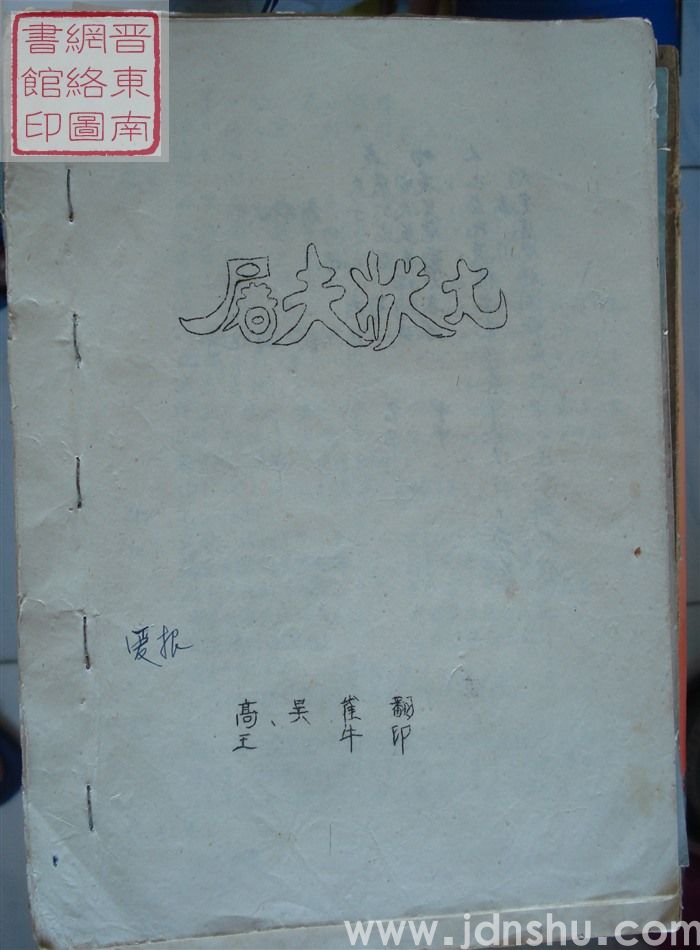 晋東南
網絡圖
書館印
屠夫状元
爱根
高、吴 崔 翻
王 牛 印
www.jdnshu.com